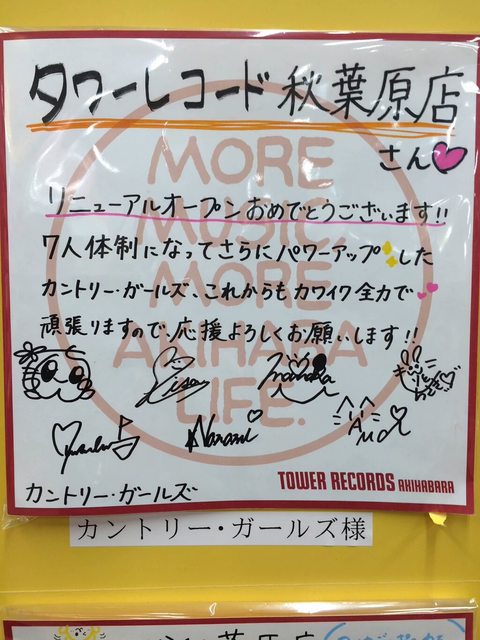 タワーレコード秋葉原店
さん
リニューアルオープンおめでとうございます!!
7人体制になってさらにパワーアップした
カントリー・ガールズ、これからもカワイク全力で
頑張りますので、応援よろしくお願いします!!
MORE
MUSIC,
MORE
AKIHABARA
LIFE.
Risa
Manaka
Nanami
カントリー・ガールズ
TOWER RECORDS AKIHABARA
カントリー・ガールズ様